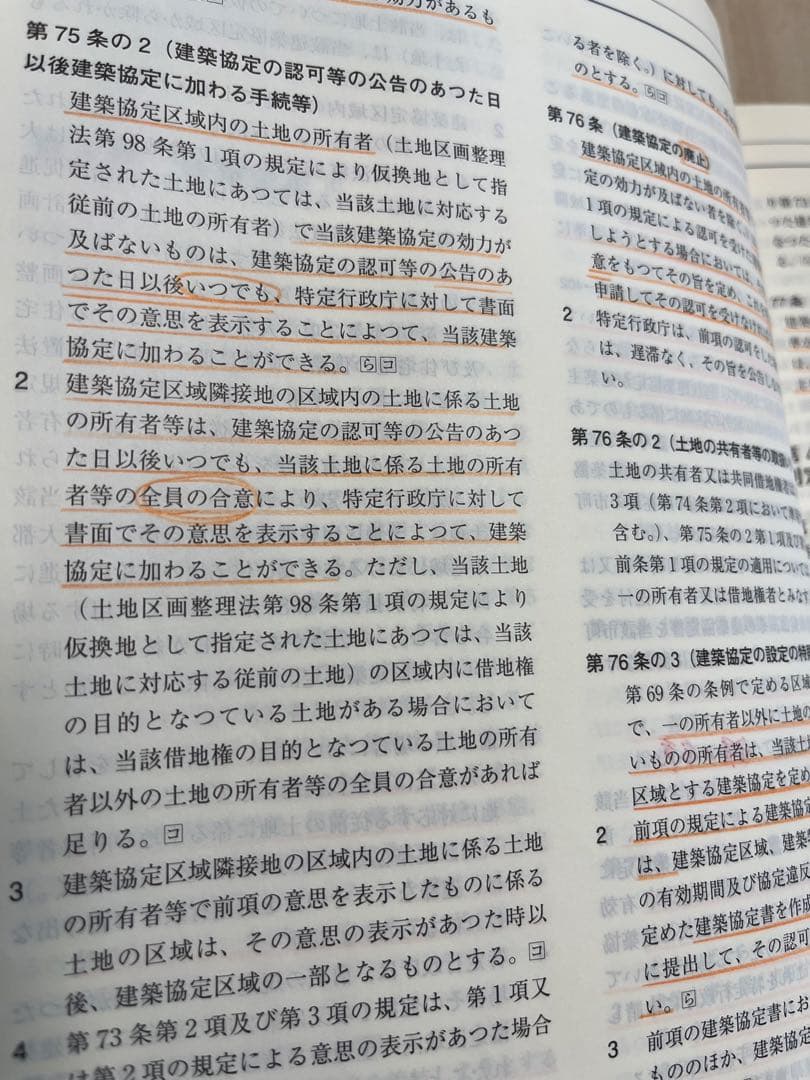 効力があるも
第75条の2（建築協定の認可等の公告のあつた日
以後建築協定に加わる手続等）
建築協定区域内の土地の所有者（土地区画整理
法第98条第1項の規定により仮換地として指
定された土地にあつては、当該土地に対応する
従前の土地の所有者）で当該建築協定の効力が
及ばないものは、建築協定の認可等の公告のあ
つた日以後いつでも、特定行政庁に対して書面
でその意思を表示することによつて、当該建築
協定に加わることができる。らコ
2 建築協定区域隣接地の区域内の土地に係る土地
の所有者等は、建築協定の認可等の公告のあつ
た日以後いつでも、当該土地に係る土地の所有
者等の全員の合意により、特定行政庁に対して
書面でその意思を表示することによつて、建築
協定に加わることができる。ただし、当該土地
（土地区画整理法第98条第1項の規定により
仮換地として指定された土地にあつては、当該
土地に対応する従前の土地）の区域内に借地権
の目的となつている土地がある場合において
は、当該借地権の目的となつている土地の所有
者以外の土地の所有者等の全員の合意があれば
足りる。コ
3 建築協定区域隣接地の区域内の土地に係る土地
の所有者等で前項の意思を表示したものに係る
土地の区域は、その意思の表示があつた時以
後、建築協定区域の一部となるものとする。ヨ
4 第73条第2項及び第3項の規定は、第1項又
は第2項の規定による意思の表示があつた場合
る者を除く。）に対しても、
のとする。らコ
第76条（建築協定の廃止）
建築協定区域内の土地の所有者
定の効力が及ばない者を除く
1項の規定による認可を受けた
しようとする場合においては、
意をもつてその旨を定め、これを
申請してその認可を受けなければ
2 特定行政庁は、前項の認可をした
は、遅滞なく、その旨を公告し
い。
第76条の2（土地の共有者等の取扱
土地の共有者又は共同借地権者
3項（第74条第2項において
含む。）、第75条の2第1項及び
前条第1項の規定の適用について
一の所有者又は借地権者とみな
第76条の3（建築協定の設定の特
第69条の条例で定める区域
で、一の所有者以外に土地の
いものの所有者は、当該土地
区域とする建築協定を定め
2 前項の規定による建築協定
は、建築協定区域、建築
の有効期間及び協定違反
定めた建築協定書を作成
に提出して、その認可
い。ら
3 前項の建築協定書にお
もののほか、建築協定